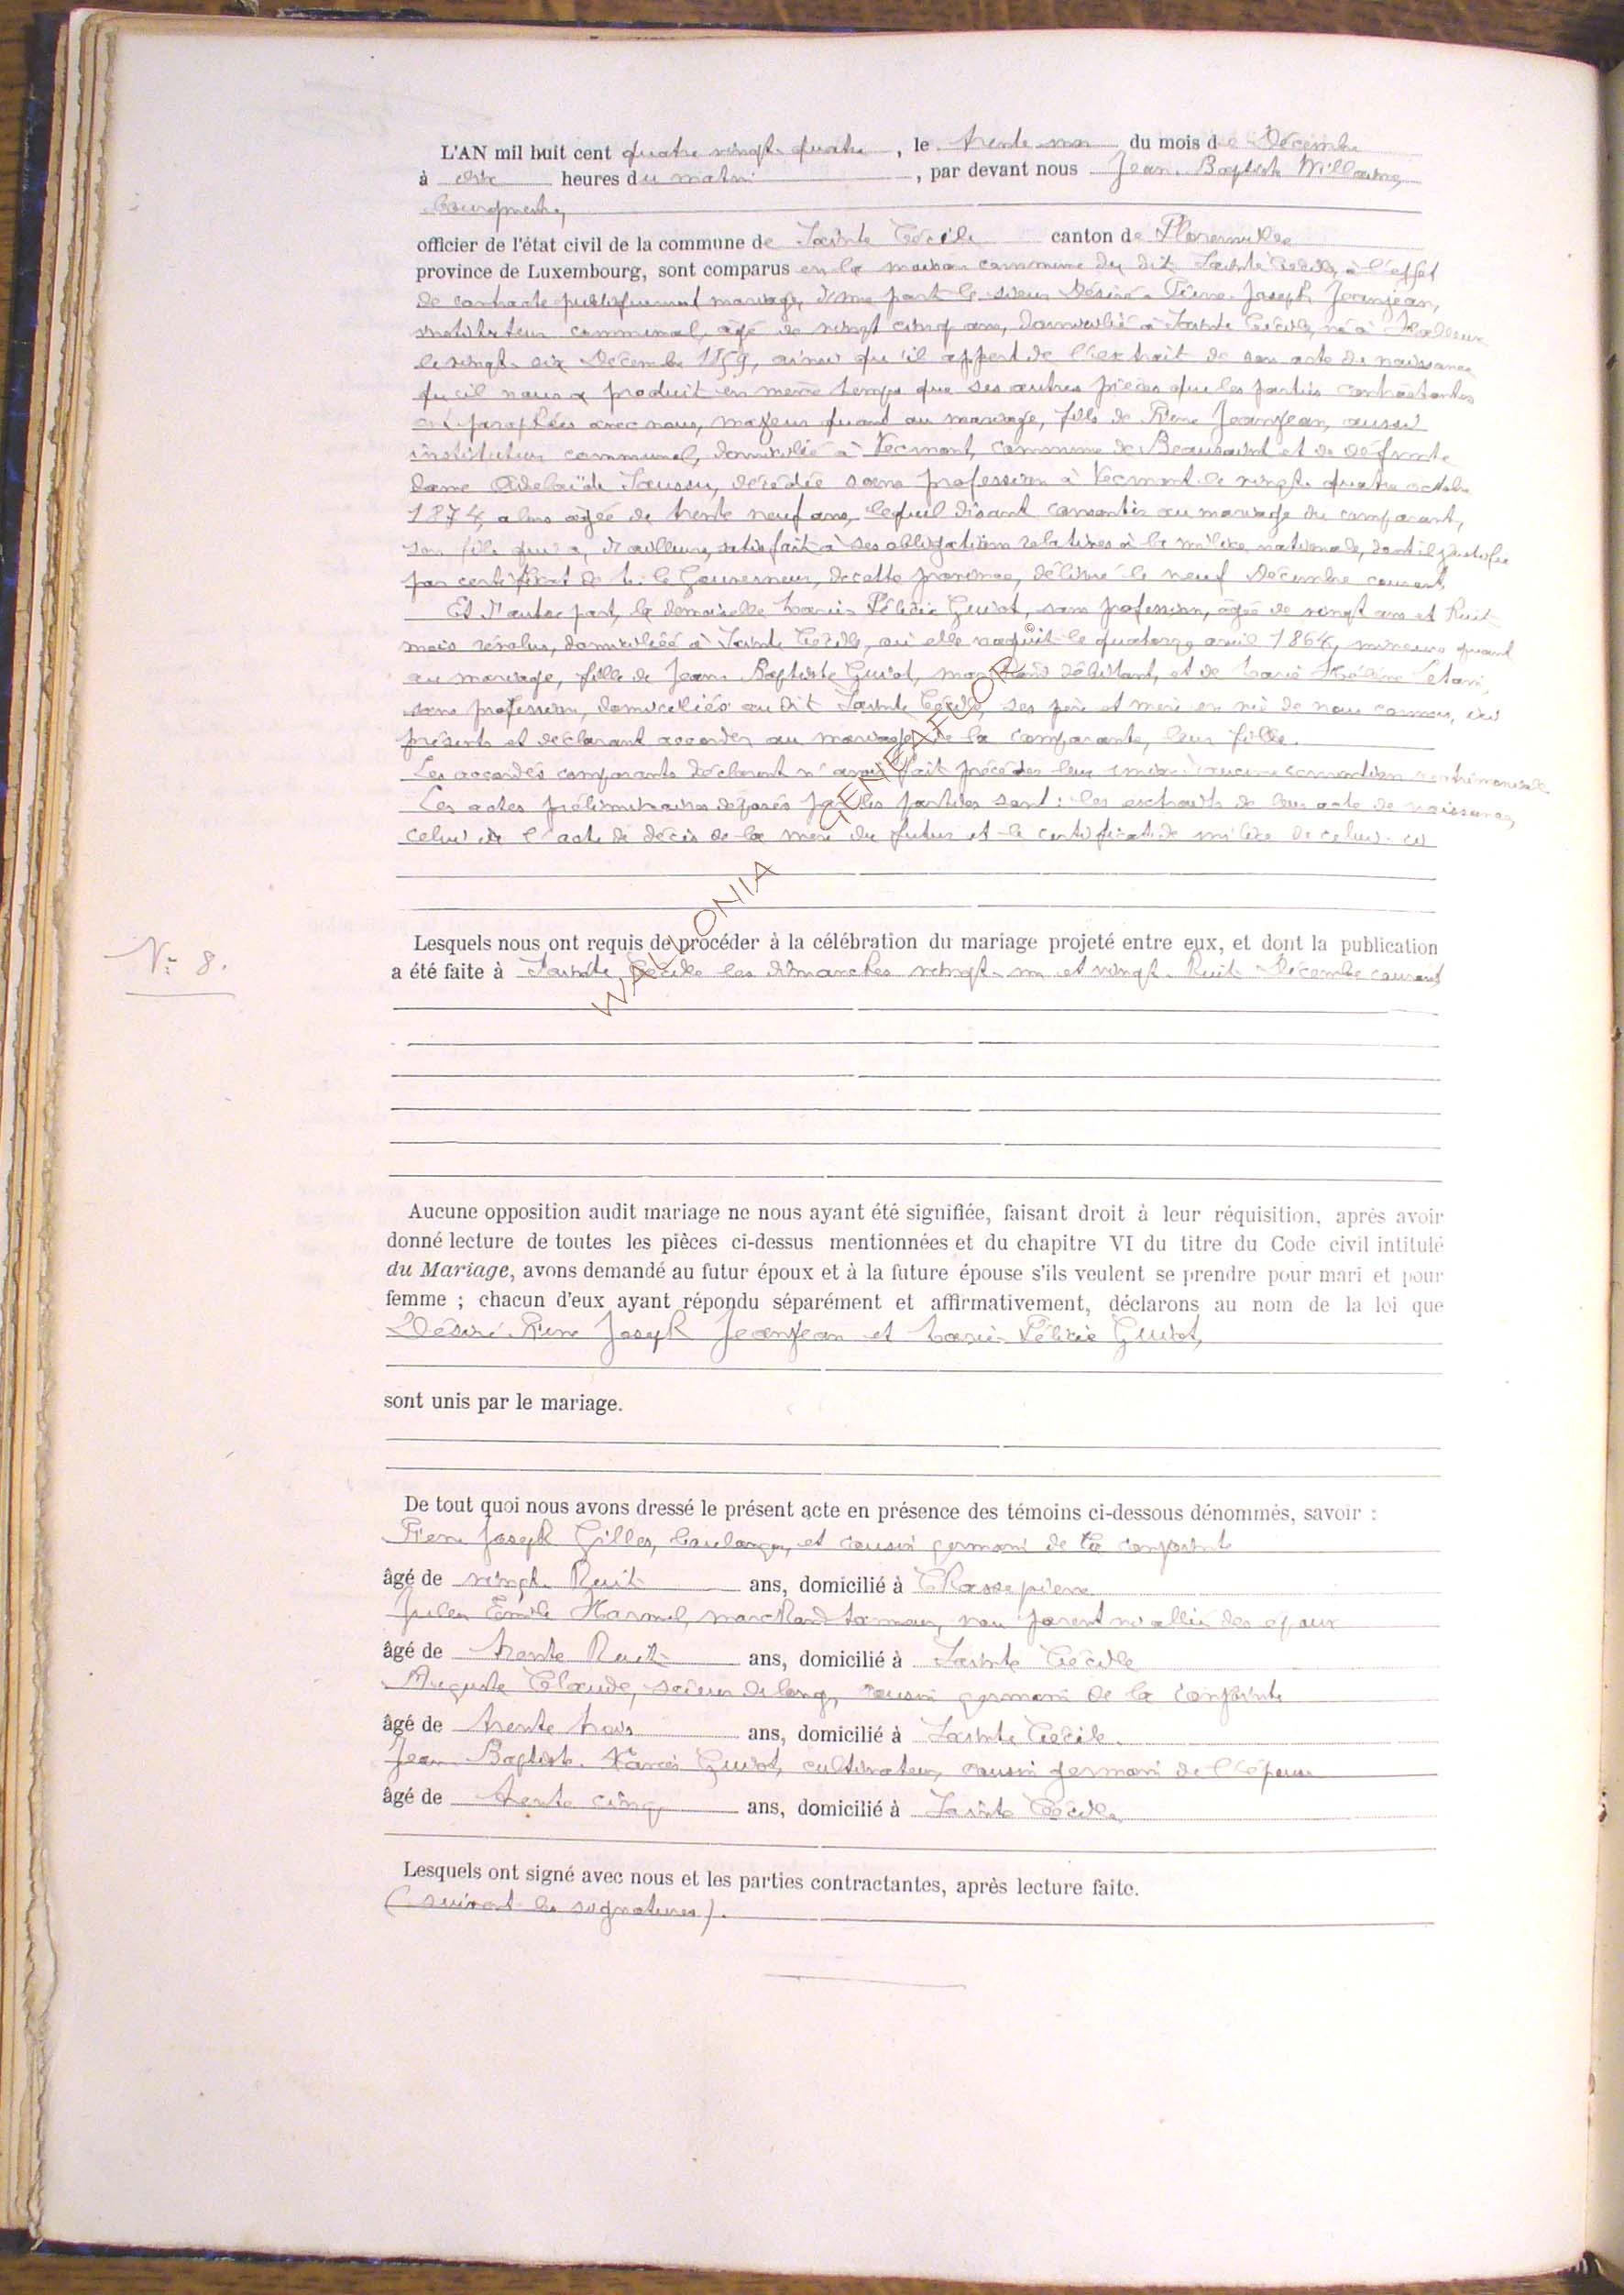 L'AN mil huit cent quatre vingt quatre, le trente un du mois de Décembre
à dix heures du matin, par devant nous Jean Baptiste Willaume,
bourgmestre,
officier de l'état civil de la commune de Sainte Cécile canton de Florenville
province de Luxembourg, sont comparus en la maison commune du dit Sainte Cécile, à l'effet
de contracter publiquement mariage, d'une part le sieur Désiré Pierre Joseph Jeanjean,
instituteur communal, âgé de vingt cinq ans, domicilié à Sainte Cécile, né à Halleux
le vingt six Décembre 1859, ainsi qu'il appert de l'extrait de son acte de naissance
qu'il nous a produit en même temps que ses autres pièces que les parties contractantes
ont paraphées avec nous, majeur quant au mariage, fils de Pierre Jeanjean, aussi
instituteur communal, domicilié à Vecmont, commune de Beausaint et de défunte
dame Adelaïde Saussu, décédée sans profession à Vecmont le vingt quatre octobre
1874, alors âgée de trente neuf ans, lequel disant consentir au mariage du comparant,
son fils qui a, d'ailleurs, satisfait à ses obligations relatives à la milice nationale, dont il justifie
par certificat de M. le Gouverneur, de cette province, délivré le neuf Décembre courant,
Et d'autre part, la demoiselle Marie Félicie Guiot, sans profession, âgée de vingt ans et huit
mois révolus, domiciliée à Sainte Cécile, où elle naquit le quatorze avril 1864, mineure quant
au mariage, fille de Jean Baptiste Guiot, marchand débitant, et de Marie Hélène
sans profession, domiciliés au dit Sainte Cécile, ses père et mère de nous connus, ici
présents et déclarant accorder au mariage de la comparante, leur fille.
Les accordés comparants déclarent n'avoir fait précéder leur union d'aucune convention matrimoniale.
Les actes préliminaires déposés par les parties sont: les extraits de leur acte de naissance,
celui de l'acte de décès de la mère du futur et le certificat de milice de celui-ci
N° 8.
Lesquels nous ont requis de procéder à la célébration du mariage projeté entre eux, et dont la publication
a été faite à Sainte Cécile les dimanches vingt-un et vingt-huit Décembre courant,
WALLONIA © GENEAFLOR
Aucune opposition audit mariage ne nous ayant été signifiée, faisant droit à leur réquisition, après avoir
donné lecture de toutes les pièces ci-dessus mentionnées et du chapitre VI du titre du Code civil intitulé
du Mariage, avons demandé au futur époux et à la future épouse s'ils veulent se prendre pour mari et pour
femme ; chacun d'eux ayant répondu séparément et affirmativement, déclarons au nom de la loi que
Désiré Pierre Joseph Jeanjean et Marie Félicie Guiot,
sont unis par le mariage.
De tout quoi nous avons dressé le présent acte en présence des témoins ci-dessous dénommés, savoir :
Pierre Joseph Gilles, boulanger, et cousin germain de la conjointe
âgé de vingt huit ans, domicilié à Chassepierre
Jules Emile Harmel, marchand tanneur, non parent ni allié des époux
âgé de trente huit ans, domicilié à Sainte Cécile
Auguste Claude, scieur de long, cousin germain de la conjointe
âgé de trente trois ans, domicilié à Sainte Cécile.
Jean Baptiste Narcis Guiot, cultivateur, cousin germain de l'épouse
âgé de trente cinq ans, domicilié à Sainte Cécile
Lesquels ont signé avec nous et les parties contractantes, après lecture faite.
(suivent les signatures).